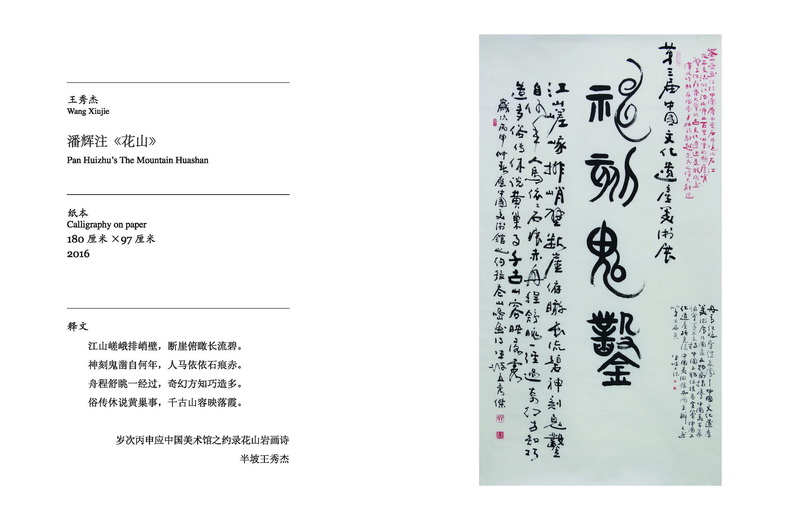 王秀杰
Wang Xiujie
潘辉注《花山》
Pan Huizhu's The Mountain Huashan
纸本
Calligraphy on paper
180 厘米 ×97 厘米
2016
释文
江山嵯峨排峭壁，断崖俯瞰长流碧。
神刻鬼凿自何年，人马依依石痕赤。
舟程舒眺一经过，奇幻方知巧造多。
俗传休说黄巢事，千古山容映落霞。
岁次丙申应中国美术馆之约录花山岩画诗
半坡王秀杰
第三届中國文化遺產美術展
神刻鬼鑿
江山嵯峨排峭壁断崖俯瞰长流碧神刻鬼鑿
自何年人馬依依石痕赤舟程舒眺一经过奇幻方知巧
造多俗传休说黄巢事千古山容映落霞